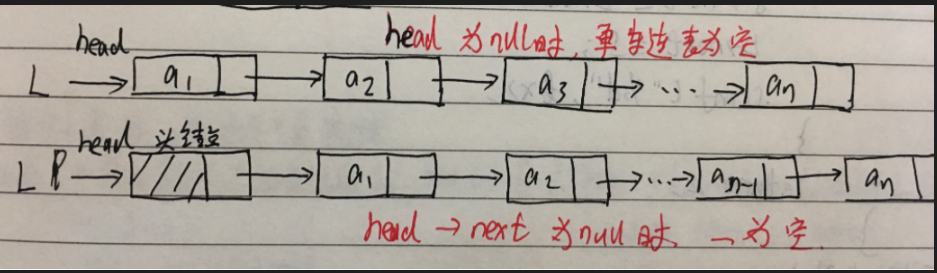 head 为null时,单链表为空
L → head a₁ → a₂ → a₃ → ... → aₙ
head 头结点
L P → a₁ → a₂ → ... → aₙ₋₁ → aₙ
head → next 为null时 一为空.